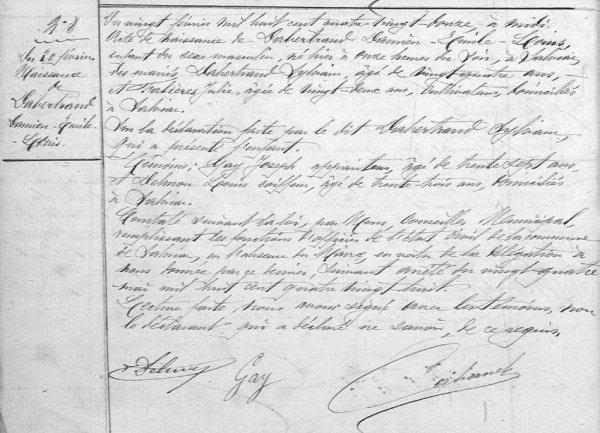 N° 8
Du 20 février
Naissance
de
Labertrand
Damien-Emile-
Louis.
Du vingt février mil huit cent quatre-vingt-douze, à midi
Acte de naissance de Labertrand Damien-Emile-Louis,
enfant du sexe masculin, né hier à onze heures du soir, à
des mariés, Labertrand Sylvain, âgé de vingt-quatre ans,
et Julie, âgée de vingt-deux ans, cultivateurs, domiciliés
à
Sur la déclaration faite par le dit Labertrand Sylvain,
qui a présenté l'enfant.
Témoins: Gay Joseph appariteur, âgé de trente sept ans
et Louis coiffeur, âgé de trente-trois ans, domiciliés
à
Constaté suivant la loi, par Nous, conseiller Municipal,
remplissant les fonctions d'officier de l'état civil de la commune
de en l'absence du Maire, en vertu de la délégation à
nous donnée par ce dernier, suivant arrêté du vingt-quatre
mai mil huit cent quatre vingt huit.
Lecture faite, nous avons signé avec les témoins, non
le déclarant qui a déclaré ne savoir, de ce requis.
Gay